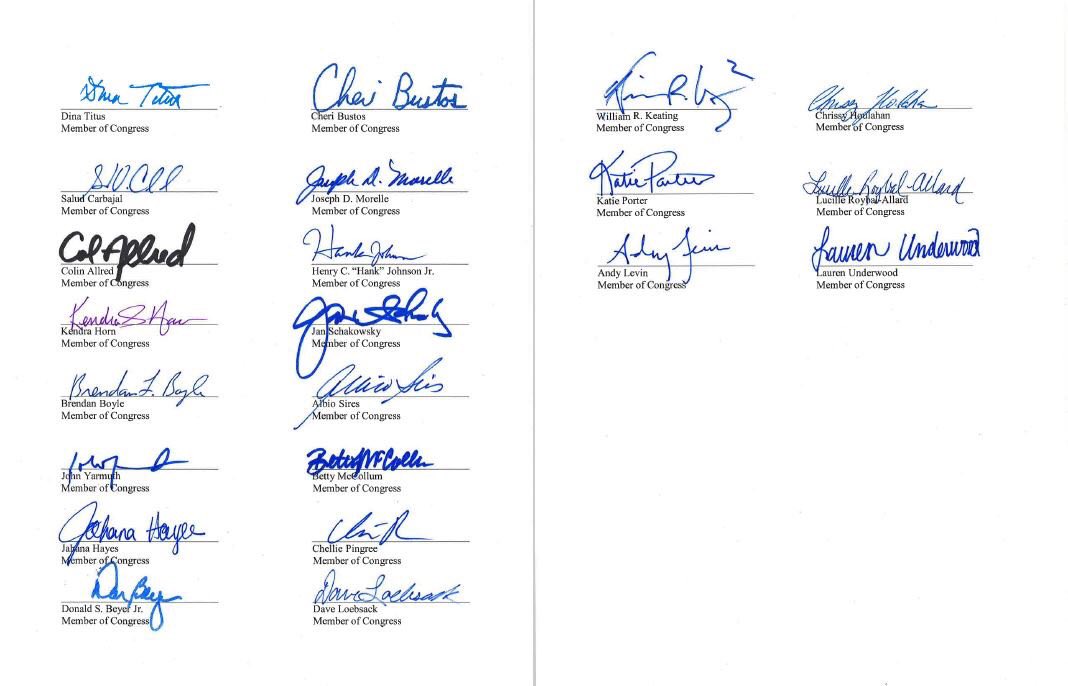 Dina Titus
Dina Titus
Member of Congress
Salud Carbajal
Member of Congress
Colin Allred
Member of Congress
Kendra S Horn
Kendra Horn
Member of Congress
Brendan F. Boyle
Brendan Boyle
Member of Congress
John Yarmuth
Member of Congress
Jahana Hayes
Jahana Hayes
Member of Congress
Don Beyer
Donald S. Beyer Jr.
Member of Congress
Cheri Bustos
Cheri Bustos
Member of Congress
Joseph D. Morelle
Joseph D. Morelle
Member of Congress
Hank Johnson
Henry C. “Hank” Johnson Jr.
Member of Congress
Jan Schakowsky
Jan Schakowsky
Member of Congress
Albio Sires
Albio Sires
Member of Congress
Betty McCollum
Betty McCollum
Member of Congress
Chellie Pingree
Member of Congress
Dave Loebsack
Dave Loebsack
Member of Congress
William R. Keating
Member of Congress
Katie Porter
Katie Porter
Member of Congress
Andy Levin
Andy Levin
Member of Congress
Chrissy Houlahan
Chrissy Houlahan
Member of Congress
Lucille Roybal-Allard
Lucille Roybal-Allard
Member of Congress
Lauren Underwood
Lauren Underwood
Member of Congress